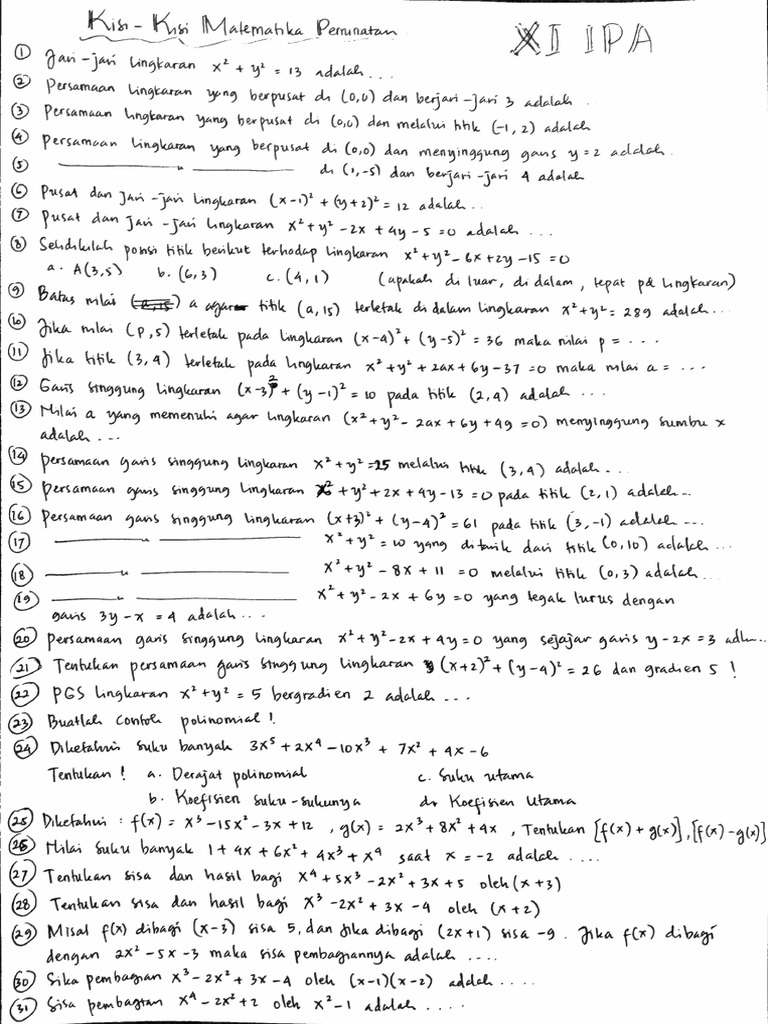 Kisi - Kisi Matematika Peminatan XI IPA
① Jari-jari lingkaran x² + y² = 13 adalah...
② Persamaan lingkaran yang berpusat di (0,0) dan berjari-jari 3 adalah...
③ Persamaan lingkaran yang berpusat di (0,0) dan melalui titik (-1, 2) adalah
④ Persamaan lingkaran yang berpusat di (0,0) dan menyinggung garis y = 2 adalah.
⑤ ———— " ———— di (1,-5) dan berjari-jari 4 adalah
⑥ Pusat dan Jari-jari lingkaran (x-1)² + (y+2)² = 12 adalah...
⑦ Pusat dan Jari-jari lingkaran x² + y² - 2x + 4y - 5 = 0 adalah...
⑧ Selidikilah posisi titik berikut terhadap lingkaran x² + y² - 6x + 2y - 15 = 0
a. A(3,5) b. (6,3) c. (4,1) (apakah di luar, di dalam, tepat pd lingkaran)
⑨ Batas nilai a agar titik (a,15) terletak di dalam lingkaran x² + y² = 289 adalah...
⑩ Jika nilai (p,5) terletak pada lingkaran (x-4)² + (y-5)² = 36 maka nilai p = ...
⑪ Jika titik (3,4) terletak pada lingkaran x² + y² + 2ax + 6y - 37 = 0 maka nilai a = ...
⑫ Garis singgung lingkaran (x-3)² + (y-1)² = 10 pada titik (2,4) adalah...
⑬ Nilai a yang memenuhi agar lingkaran (x² + y² - 2ax + 6y + 49 = 0) menyinggung sumbu x
adalah...
⑭ persamaan garis singgung lingkaran x² + y² = 25 melalui titik (3,4) adalah...
⑮ persamaan garis singgung lingkaran x² + y² + 2x + 4y - 13 = 0 pada titik (2,1) adalah...
⑯ Persamaan garis singgung lingkaran (x+3)² + (y-4)² = 61 pada titik (3,-1) adalah...
⑰ ———— " ———— x² + y² = 10 yang ditarik dari titik (0,10) adalah...
⑱ ———— " ———— x² + y² - 8x + 11 = 0 melalui titik (0,3) adalah...
⑲ ———— " ———— x² + y² - 2x + 6y = 0 yang tegak lurus dengan
garis 3y - x = 4 adalah...
⑳ Persamaan garis singgung lingkaran x² + y² - 2x + 4y = 0 yang sejajar garis y - 2x = 3 adlh...
㉑ Tentukan persamaan garis singgung lingkaran (x+2)² + (y-4)² = 26 dan gradien 5 !
㉒ PGS lingkaran x² + y² = 5 bergradien 2 adalah...
㉓ Buatlah contoh polinomial !
㉔ Diketahui suku banyak 3x⁵ + 2x⁴ - 10x³ + 7x² + 4x - 6
Tentukan ! a. Derajat polinomial c. Suku utama
b. Koefisien suku-sukunya d. Koefisien Utama
㉕ Diketahui : f(x) = x³ - 15x² - 3x + 12 , g(x) = 2x³ + 8x² + 4x , Tentukan [f(x) + g(x)], [f(x) - g(x)]
㉖ Nilai suku banyak 1 + 4x + 6x² + 4x³ + x⁴ saat x = -2 adalah....
㉗ Tentukan sisa dan hasil bagi x⁴ + 5x³ - 2x² + 3x + 5 oleh (x+3)
㉘ Tentukan sisa dan hasil bagi x³ - 2x² + 3x - 4 oleh (x+2)
㉙ Misal f(x) dibagi (x-3) sisa 5, dan jika dibagi (2x+1) sisa -9. Jika f(x) dibagi
dengan 2x² - 5x - 3 maka sisa pembagiannya adalah....
㉚ Sika pembagian x³ - 2x² + 3x - 4 oleh (x-1)(x-2) adalah....
㉛ Sisa pembagian x⁴ - 2x² + 2 oleh x² - 1 adalah....